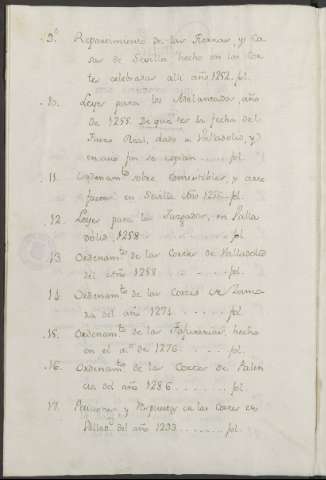 9º. Repartimiento de las Tierras, y Ca
sas de Sevilla hecho en las Cor
tes celebradas alli año 1252. fol.
10. Leyes para los Adelantados, año
de 1255. De que es la fecha del
Fuero Real, dado a Valladolid, y
en cuio fin se copian ...... fol.
11. Ordenamto sobre comestibles, y
fueron en Sevilla Año 1256. fol.
12. Leyes para los Juzgados, en Valla
dolid, 1258 ......... fol.
13. Ordenamto de las Cortes de Valladolid
del Año 1258 ...... fol.
14. Ordenamto de las Cortes de Zamo
ra del año 1274 ....... fol.
15. Ordenamto de las Tafurerias, hecho
en el aº. de 1276. ..... fol.
16. Ordenamto de las Cortes de Palen
cia del año 1286 ....... fol.
17. Peticiones y Respuestas en las Cortes en
Valladd. del año 1293 ....... fol.